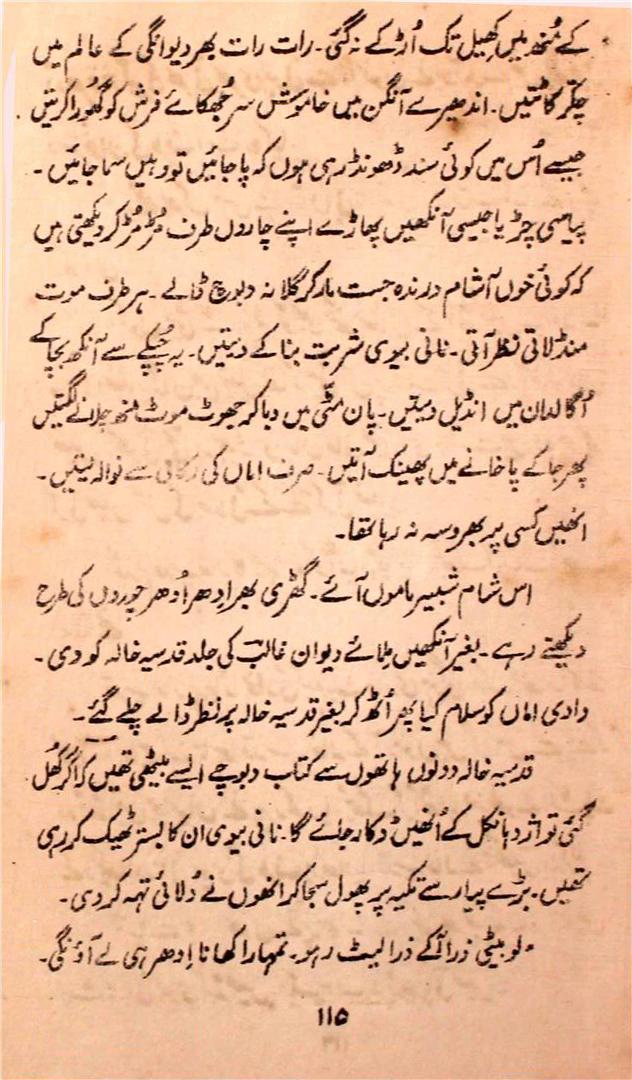 کے مُنھ میں کھیل تک اُڑ کے نہ گئی۔ رات رات بھر دیوانگی کے عالم میں
چکّر کاٹتیں۔ اندھیرے آنگن میں خاموش سر جُھکائے فرش کو گُھورا کرتیں
جیسے اُس میں کوئی سند ڈھونڈ رہی ہوں کہ پا جائیں تو وہیں سما جائیں۔
پیاسی چڑیا جیسی آنکھیں پھاڑے اپنے چاروں طرف مُڑ مُڑ کر دیکھتی ہیں
کہ کوئی خوں آشام درندہ جست مار کر گلا نہ دبوچ ڈالے۔ ہر طرف موت
منڈلاتی نظر آتی۔ نانی بیوی شربت بنا کے دیتیں۔ یہ چُپکے سے آنکھ بچا کے
اُگالدان میں انڈیل دیتیں۔ پان مٹّھی میں دبا کر جھوٹ موٹ منھ چلانے لگتیں
پھر جا کے پاخانے میں پھینک آتیں۔ صرف اماں کی رکابی سے نوالہ لیتیں۔
انھیں کسی پر بھروسہ نہ رہا تھا۔
اس شام شبیر ماموں آئے۔ گھڑی بھر اِدھر اُدھر چوروں کی طرح
دیکھتے رہے۔ بغیر آنکھیں مِلائے دیوان غالبؔ کی جلد قدسیہ خالہ کو دی۔
دادی اماں کو سلام کیا پھر اُٹھ کر بغیر قدسیہ خالہ پر نظر ڈالے چلے گئے۔
قدسیہ خالہ دونوں ہاتھوں سے کتاب دبوچے ایسے بیٹھی تھیں کہ اگر کُھل
گئی تو اژدہا نکل کے اُنھیں ڈکار جائے گا۔ نانی بیوی ان کا بستر ٹھیک کر رہی
تھیں۔ بڑے پیار سے تکیہ پر پھول سجا کر انھوں نے دُلائی تہہ کر دی۔
”لو بیٹی ذرا آ کے ذرا لیٹ رہو۔ تمہارا کھانا اِدھر ہی لے آؤنگی۔
۱۱۵